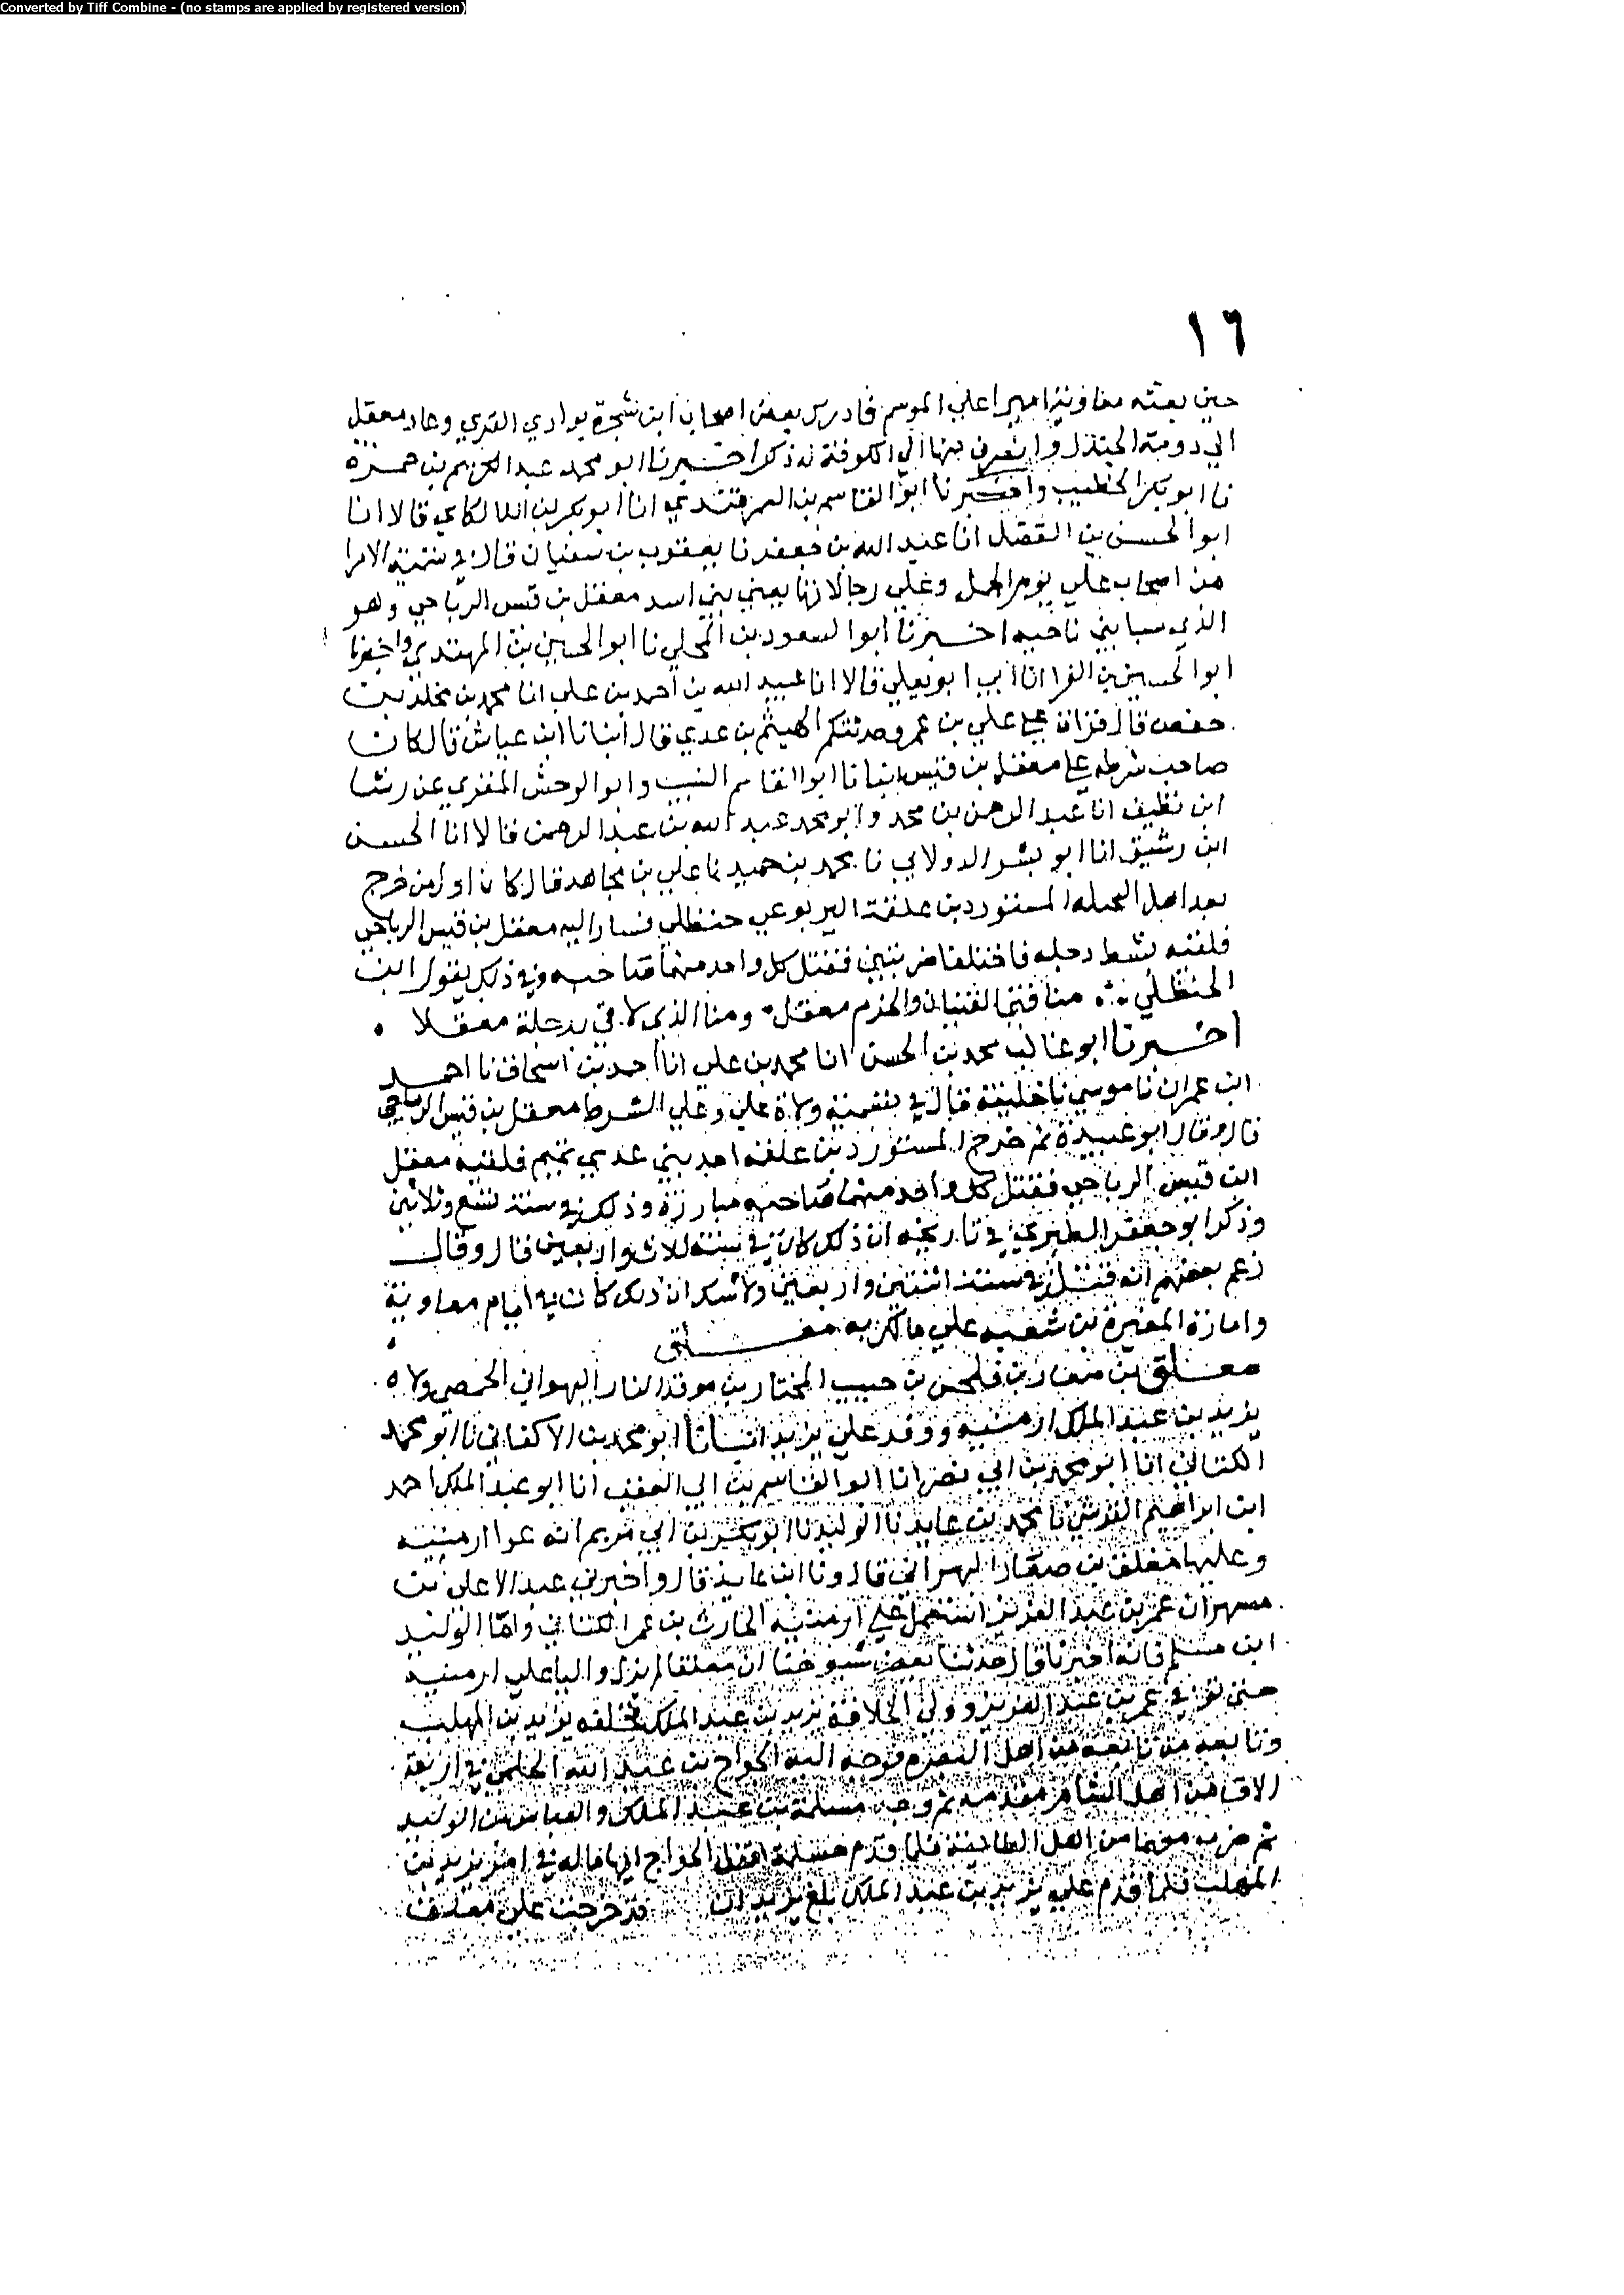 Converted by Tiff Combine - (no stamps are applied by registered version)
١٦
حين بعثه معاوية اميرا علي الموسم فادرس بعض اصحاب ابن شجرة بوادي القري وعاد معقل
الي دومة الجندل وانصرف منها الي الكوفة له ذكر اخبرنا ابو محمد عبد الكريم بن حمزة
نا ابو بكر الخطيب واخبرنا ابو القاسم بن السمرقندي انا ابو بكر بن اللالكاي قالا انا
ابو الحسن بن الفضل انا عبد الله بن جعفر نا يعقوب بن سفيان قال في تسمية الامرا
من اصحاب علي يوم الجمل وعلي رجالاتها يعني بني اسد معقل بن قيس الرياحي وهو
الذي سبا بني ناجيه اخبرنا ابو السعود بن المجلي نا ابو الحسين بن المهتدي واخبرنا
ابو الحسين بن الفرا انا ابي ابو يعلي قالا انا عبيد الله بن احمد بن علي انا محمد بن مخلد بن
حفص قال قرات علي علي بن عمرو حدثكم الهيثم بن عدي قال انبانا ابن عياش قال كان
صاحب شرطه علي معقل بن قيس انبانا ابو القاسم النسيب وابو الوحش المقري عن رشا
ابن نظيف انا عبد الرحمن بن محمد وابو محمد عبد الله بن عبد الرحمن قالا انا الحسن
ابن رشيق انا ابو بشر الدولابي نا محمد بن حميد نا علي بن مجاهد قال كان اول من خرج
بعد اهل النخيله المستورد بن علفة اليربوعي حنظلي فسار اليه معقل بن قيس الرياحي
فلقنه بشط دجله فاختلفا ضربتين فقتل كل واحد منهما صاحبه وفي ذلك يقول ابن
الحنظلي منا فتي الفتيان والحزم معقل ومنا الذي لاقي بدجلة معقلا
اخبرنا ابو غالب محمد بن الحسن انا محمد بن علي انا احمد بن اسحاق نا احمد
ابن عمران نا موسي نا خليفة قال في تسمية ولاة علي وعلي الشرط معقل بن قيس الرياحي
قال وقال ابو عبيدة ثم خرج المستورد بن علفه احد بني عدي تميم فلقيه معقل
ابن قيس الرياحي فقتل كل واحد منهما صاحبه مبارزة وذلك في سنة تسع وثلاثين
وذكر ابو جعفر الطبري في تاريخه ان ذلك كان في سنة ثلاث واربعين قال وقال
زعم بعضهم انه قتل في سنة اثنتين واربعين ولا شك ان ذلك كان في ايام معاوية
وامارة المغيرة بن شعبه علي ما ذكر به معلق
معلق بن صفار بن فلحس بن حبيب المختار بن موقد النار البهراني الحمصي ولاه
يزيد بن عبد الملك ارمنيه ووفد علي يزيد انبانا ابو محمد بن الاكفاني نا ابو محمد
الكتاني انا ابو محمد بن ابي نصر انا ابو القاسم بن ابي العقب انا ابو عبد الملك احمد
ابن ابراهيم القرشي نا محمد بن عايذ نا الوليد نا ابو بكر بن ابي مريم انه غزا ارمينيه
وعليها معلق بن صفار البهراني قال ونا ابن عايذ قال واخبرني عبد الاعلي بن
مسهر ان عمر بن عبد العزيز استعمل علي ارمنية الحارث بن عمر الكناني واما الوليد
ابن مسلم فانه اخبرنا قال حدثنا بعض شيوخنا ان معلقا لم يزل واليا علي ارمنيه
حتي توفي عمر بن عبد العزيز وولي الخلافة يزيد بن عبد الملك فخلعه يزيد بن المهلب
وتابعه من تابعه من اهل البصرة فوجه اليه الجراح بن عبد الله الحكمي في اربعة
الاف من اهل الشام مقدمه ثم وجه مسلمة بن عبد الملك والعباس بن الوليد
ثم ضرب معهما من اهل الطاعة فلما قدم مسلمة اقفل الجراح الي ماله في امر يزيد بن
المهلب فلما قدم علي يزيد بن عبد الملك بلغ يزيد ان قد خرجت علي معلق